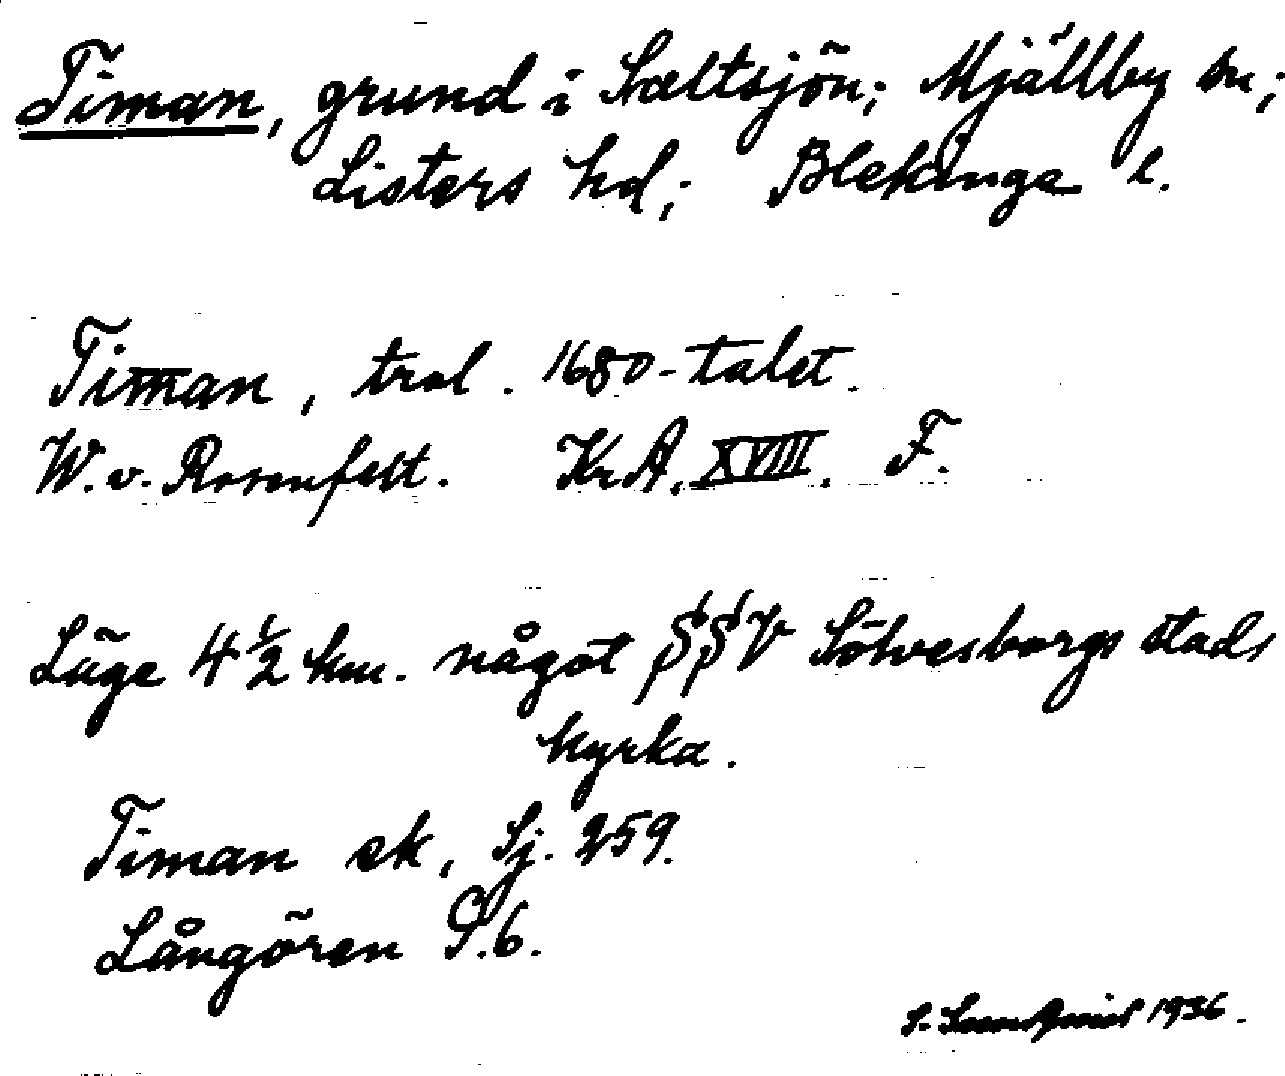 Timan, grund i Saltsjön; Mjällby sn;
Listers hd; Blekinge l.
Tim̅an, trol. 1680-talet.
W. v. Rosenfelt. Kr A. XVIII. F.
Läge 4 1/2 km. något SSV Sölvesborgs stads
kyrka.
Timan sk, Sj. 259.
Långören S.6.
S. 1936.